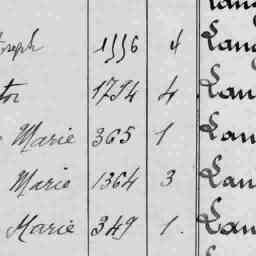 Lan
oseph 1556 4 Lan
tor 1754 4 Lan
Marie 365 1 Lan
Marie 1364 3 Lan
Marie 349 1. Lan